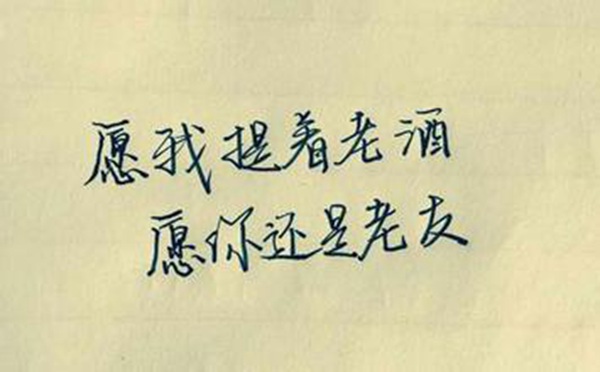 愿我提着老酒
愿你还是老友